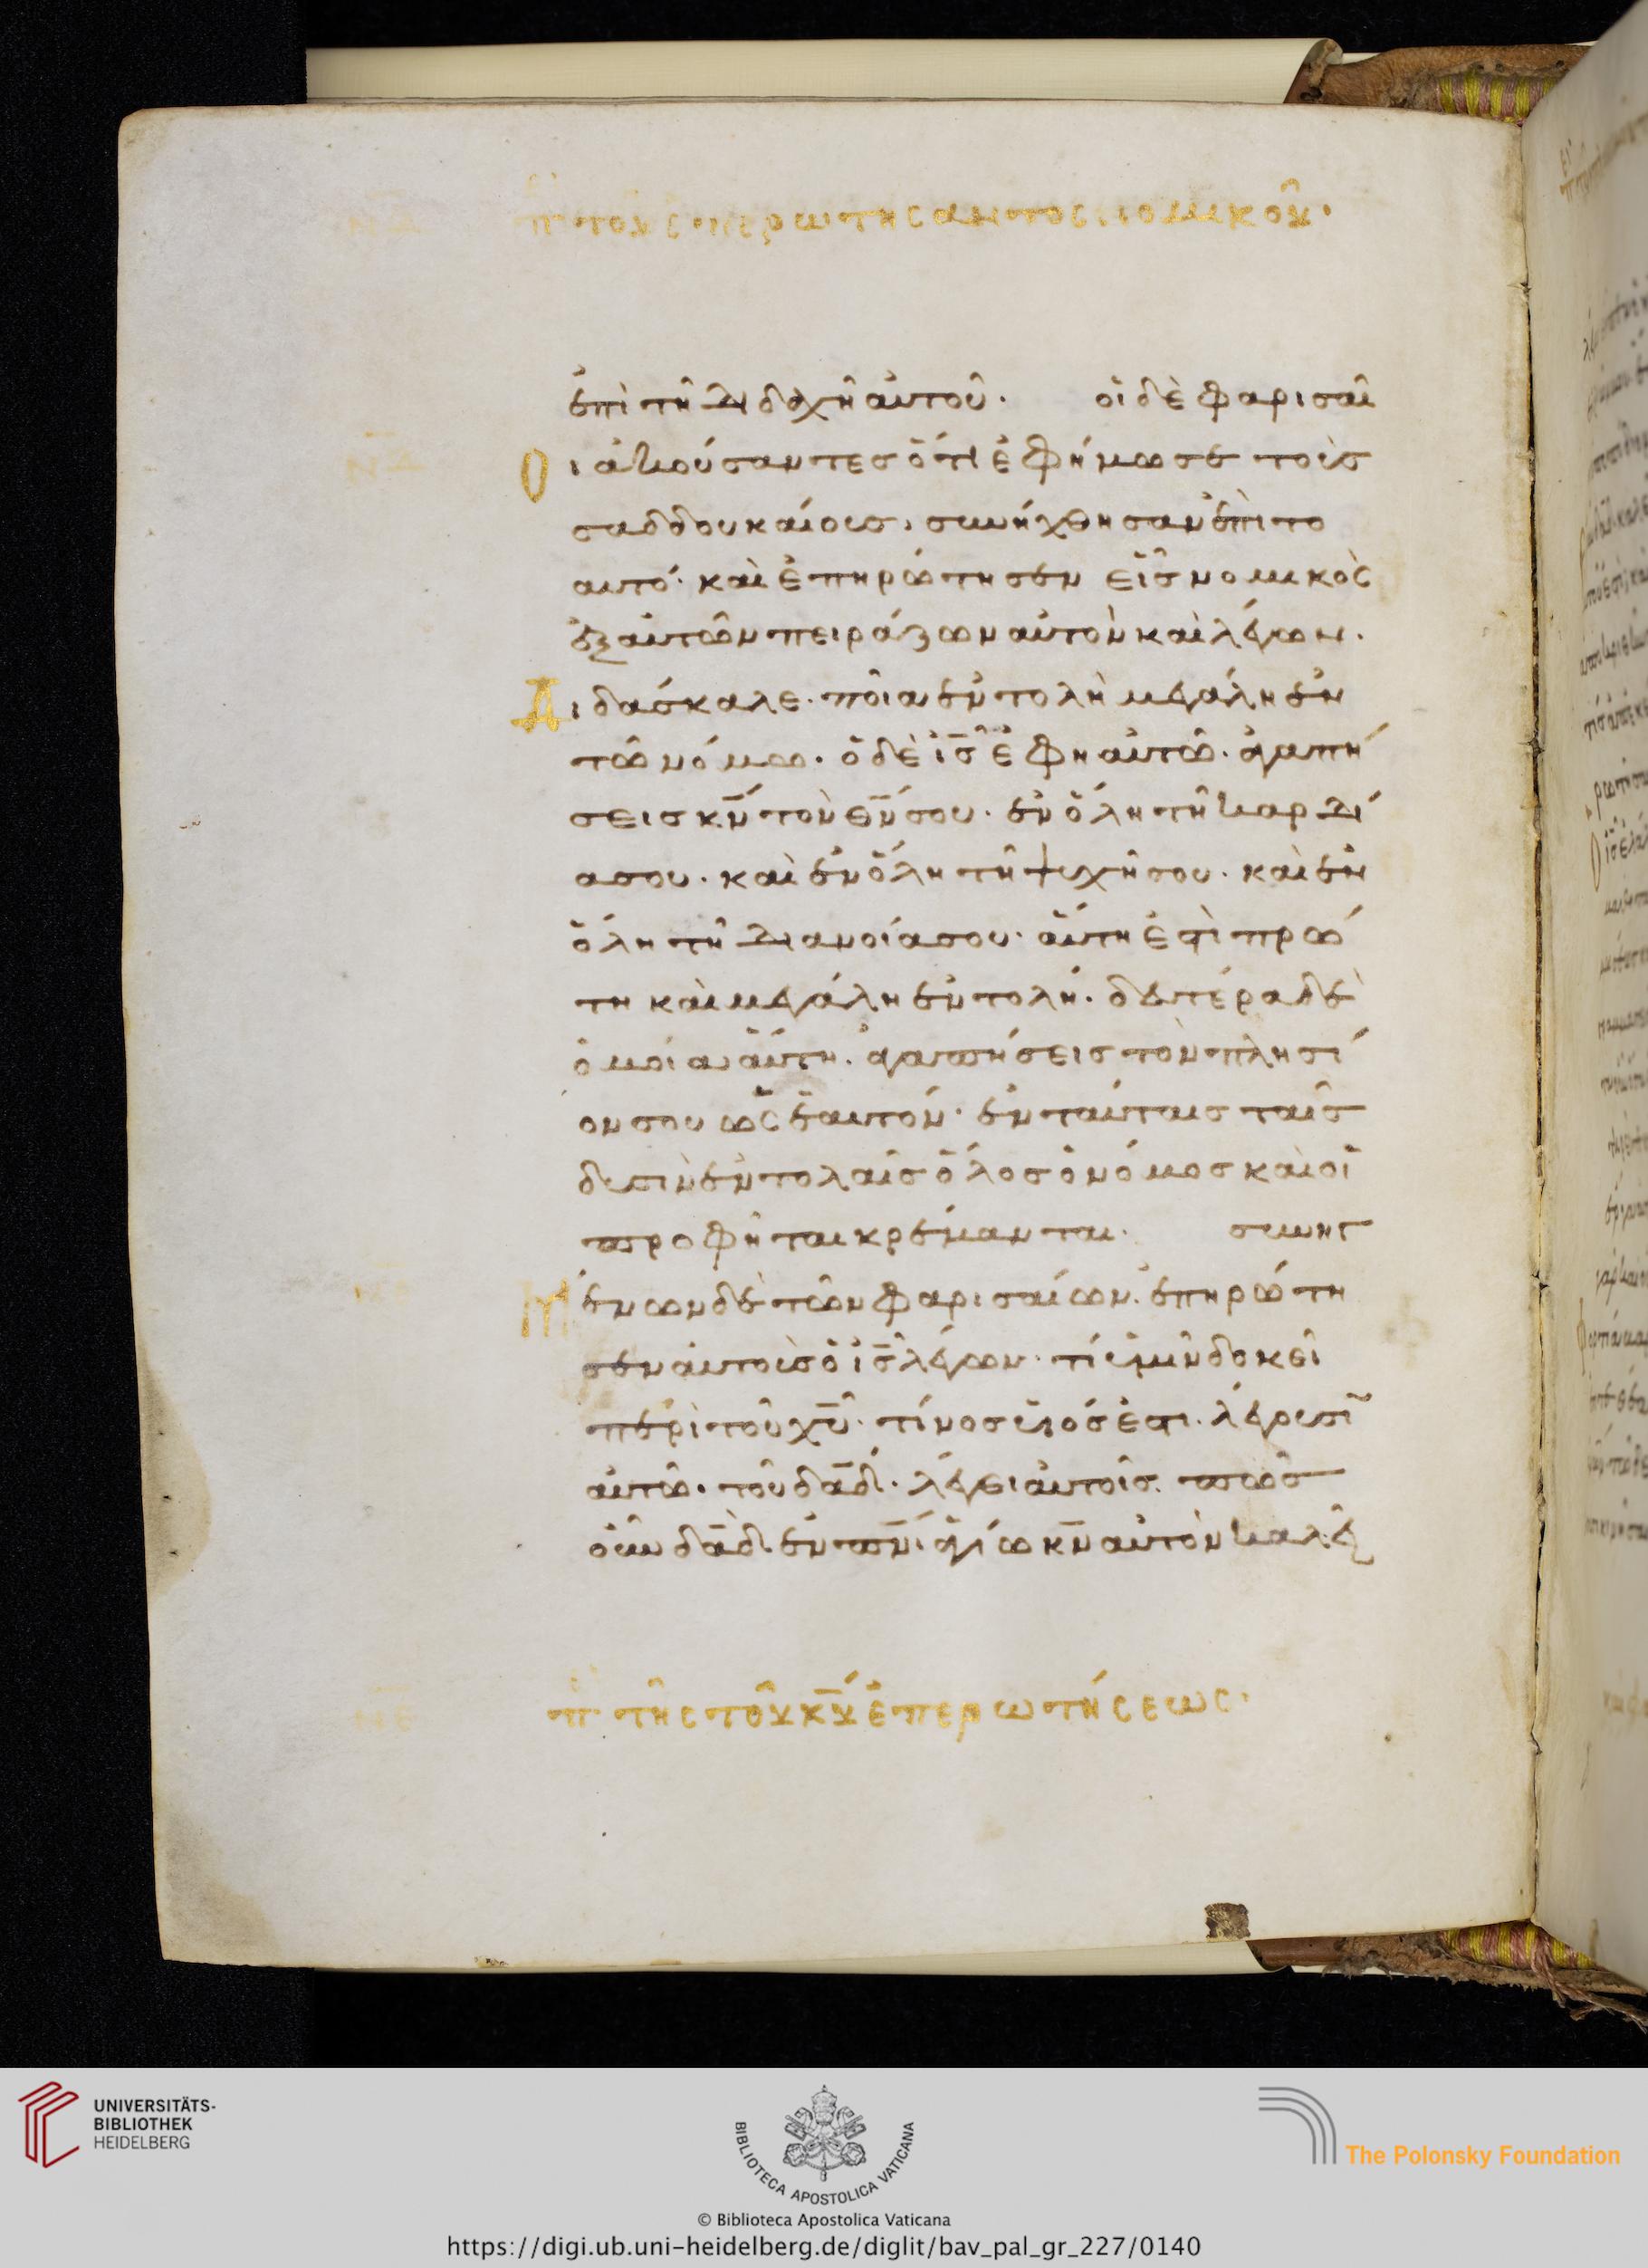 ΝΔ π τοῦ ἐπερωτήσαντος νομικοῦ·
ἐπὶ τῆ διδαχῆ αὐτοῦ· οἱ δὲ φαρισαῖ
οι ἀκούσαντες ὅτι ἐφήμωσε τοὺς
σαδδουκαίους, συνήχθησαν ἐπὶ το
αυτό· καὶ ἐπηρώτησεν εἷς νομικὸς
ἐξ αὐτῶν πειράζων αὐτὸν καὶ λέγων·
Διδάσκαλε· ποῖα ἐντολὴ μεγάλη ἐν
τῶ νόμω· ὁ δὲ ἰς̅ ἔφη αὐτῶ· ἀγαπή
σεισ κ̅ν̅ τὸν θ̅ν̅ σου· ἐν ὅλη τῆ καρδί
α σου· καὶ ἐν ὅλη τῆ ψυχῆ σου· καὶ ἐν
ὅλη τῆ διανοία σου· αὕτη ἐστὶ πρώ
τη καὶ μεγάλη ἐντολή· δευτέρα δὲ
ὁμοία αὕτη· ἀγαπήσεις τὸν πλησί
ον σου ὡς ἑαυτόν· ἐν ταύταις ταῖς
δυσὶν ἐντολαῖς ὅλος ὁ νόμος καὶ οἱ
προφῆται κρέμανται· συνηγ
μένων δὲ τῶν φαρισαίων· ἐπηρώτη
σεν αὐτοὺς ὁ ἰς̅ λέγων· τί ὑμῖν δοκεῖ
περὶ τοῦ χ̅υ̅· τίνος υἱός ἐστι· λέγουσῖ
αὐτῶ· τοῦ δα̅δ̅· λέγει αὐτοῖς· πῶς
οὖν δα̅δ̅ ἐν π̅ν̅ι̅ ἁγίω κ̅ν̅ αὐτὸν καλεῖ
ΝΕ π τῆς τοῦ κ̅υ̅ ἐπερωτήσεως·
UNIVERSITÄTS-
BIBLIOTHEK
HEIDELBERG
BIBLIOTECA APOSTOLICA VATICANA
The Polonsky Foundation
© Biblioteca Apostolica Vaticana
https://digi.ub.uni-heidelberg.de/diglit/bav_pal_gr_227/0140